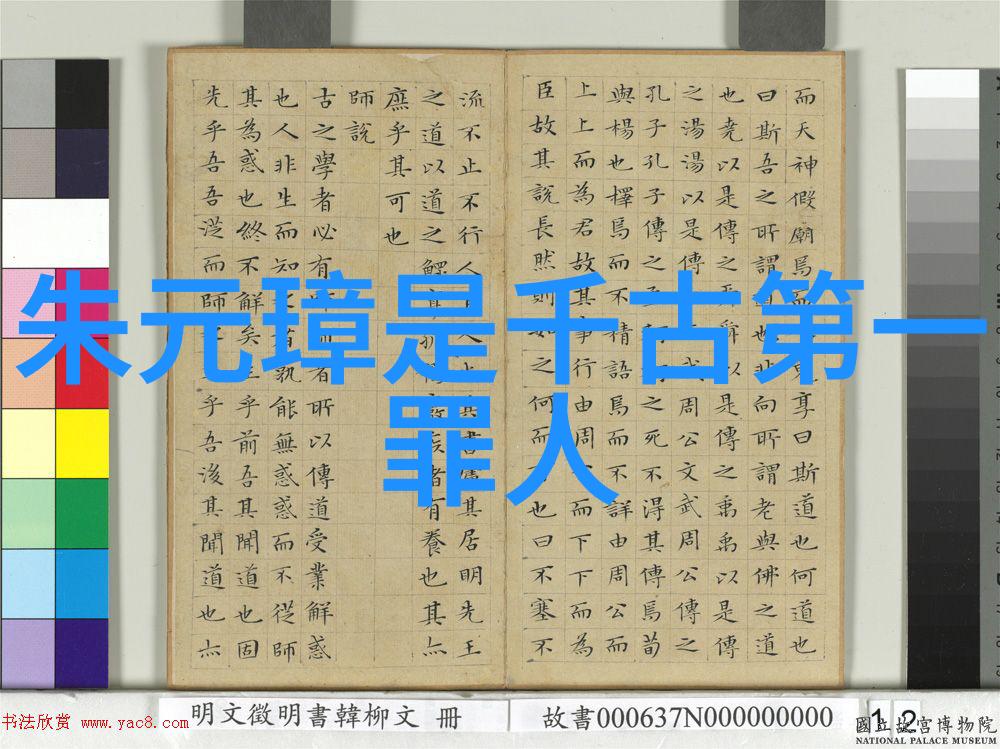 朱元璋是千古第一
罪人
而天神假廟焉而享曰斯道也何道也
曰斯吾之所謂道也非向所謂老與佛之道
也堯以是傳之舜以是傳之禹禹以是傳
之湯湯以是傳武周公文武周公傳之
孔子孔子傳之之死不得其傳焉荀
與楊也擇焉而不精語焉而不詳由周公而
上上而為君故其事行由周而下下而為
臣故其說長然則如之何而也曰不塞不
流不止不行人其書廬其居明先王
之道以道之鰥寡疾者有養也其亦
庶乎其可也
師說
古之學者必有者所以傳道受業解惑
也人非生而知者孰能無惑惑而不從師
其為惑也終不解矣乎前吾其聞道也固
先乎吾吾從而師乎吾後其聞道也亦
明文徵明書韓柳文 冊
故書000637N000000000
12
书法欣赏 www.yac8.com
國立故宮博物院
NATIONAL PALACE MUSEUM